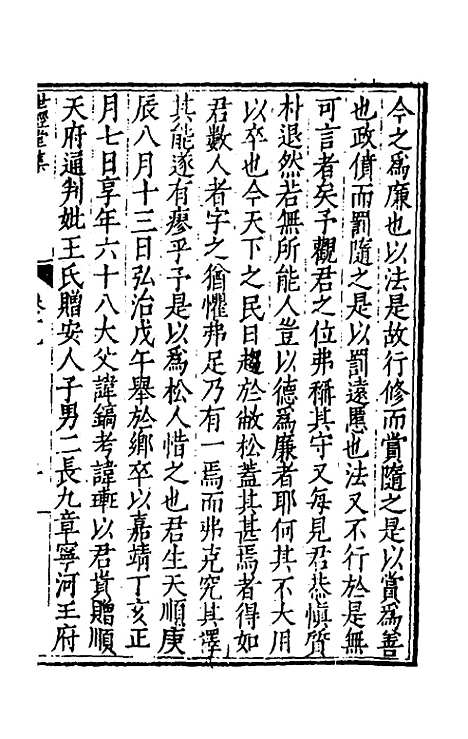 今之爲廉也以法是故行修而賞隨之是以賞爲善
也政僨而罰隨之是以罰遠慝也法又不行於是無
可言者矣予觀君之位弗稱其守又每見君恭慎質
朴退然若無所能人豈以德爲廉者耶何其不大用
以卒也今天下之民日趨於敝松蓋其甚焉者得如
君數人者字之猶懼弗足乃有一焉而弗克究其澤
其能遂有瘳乎予是以爲松人惜之也君生天順庚
辰八月十三日弘治戊午舉於鄉卒以嘉靖丁亥正
月七日享年六十八大父諱鎬考諱以君貴贈順
天府通判妣王氏贈安人子男二長九章寧河王府
世經堂集